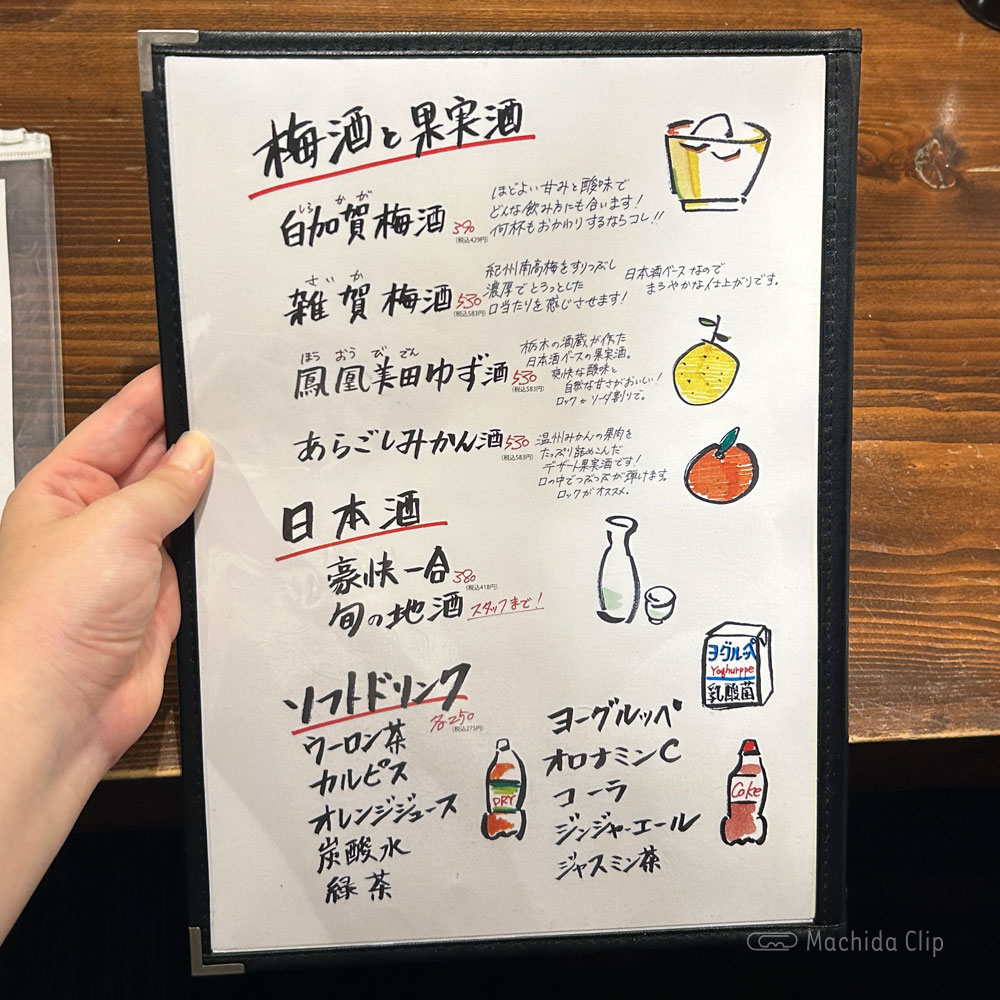 梅酒と果実酒
しろ かが
白加賀梅酒 390
(税込429円)
ほどよい甘みと酸味で
どんな飲み方にも合います!
何杯もおかわりするならコレ!!
さいか
雑賀梅酒 530
(税込583円)
紀州南高梅をすりつぶし
濃厚でとろっとした
口当たりを感じさせます!
日本酒ベースなので
まろやかな仕上がりです。
ほう おう び でん
鳳凰美田ゆず酒 530
(税込583円)
栃木の酒蔵が作た
日本酒ベースの果実酒。
爽快な酸味と
自然な甘さがおいしい!
ロックかソーダ割りで。
あらごしみかん酒 530
(税込583円)
温州みかんの果肉を
たっぷり詰めこんだ
デザート果実酒です!
口の中でつぶつぶが弾けます。
ロックがオススメ。
日本酒
豪快一合 380
(税込418円)
旬の地酒 スタッフまで!
ソフトドリンク
各250
(税込275円)
ウーロン茶
カルピス
オレンジジュース
炭酸水
緑茶
DRY
ヨーグルッペ
Yoghurppe
乳酸菌
ヨーグルッペ
オロナミンC
コーラ
ジンジャーエール
ジャスミン茶
Coke
Machida Clip